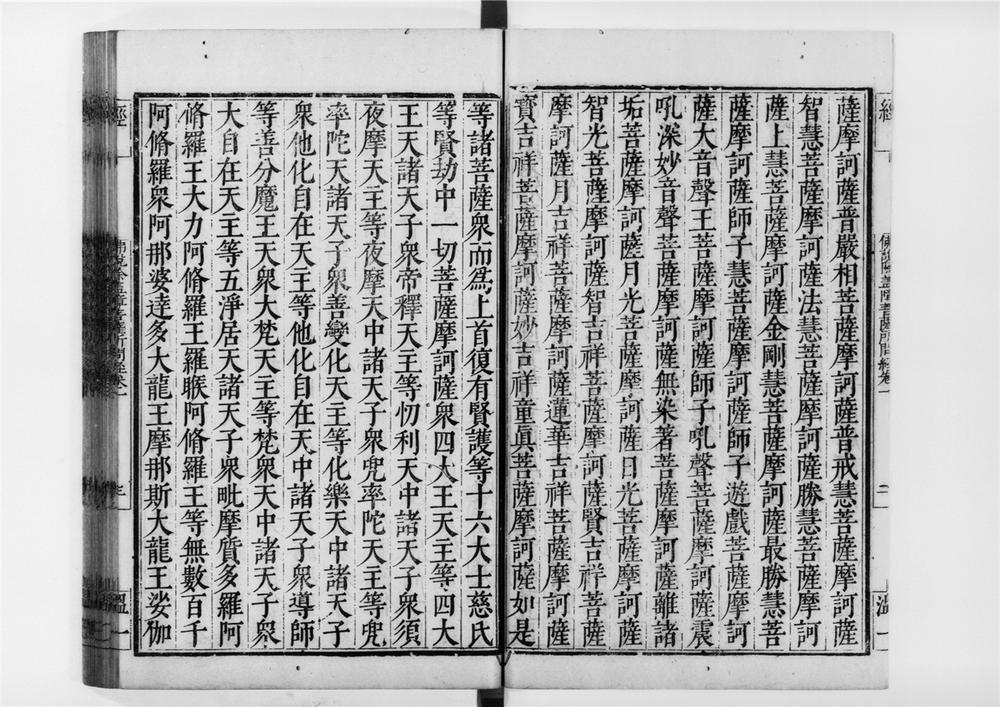 薩摩訶薩普嚴相菩薩摩訶薩普戒慧菩薩摩訶薩
智慧菩薩摩訶薩法慧菩薩摩訶薩勝慧菩薩摩訶
薩上慧菩薩摩訶薩金剛慧菩薩摩訶薩最勝慧菩
薩摩訶薩師子慧菩薩摩訶薩師子遊戲菩薩摩訶
薩大音聲王菩薩摩訶薩師子吼聲菩薩摩訶薩震
吼深妙音聲菩薩摩訶薩無染著菩薩摩訶薩離諸
垢菩薩摩訶薩月光菩薩摩訶薩日光菩薩摩訶薩
智光菩薩摩訶薩智吉祥菩薩摩訶薩賢吉祥菩薩
摩訶薩月吉祥菩薩摩訶薩蓮華吉祥菩薩摩訶薩
寶吉祥菩薩摩訶薩妙吉祥童眞菩薩摩訶薩如是
等諸菩薩衆而爲上首復有賢護等十六大士慈氏
等賢劫中一切菩薩摩訶薩衆四大王天主等四大
王天諸天子衆帝釋天主等忉利天中諸天子衆須
夜摩天主等夜摩天中諸天子衆兜率陀天主等兜
率陀天諸天子衆善變化天主等化樂天中諸天子
衆他化自在天主等他化自在天中諸天子衆導師
等善分魔王天衆大梵天主等梵衆天中諸天子衆
大自在天主等五淨居天諸天子衆毗摩質多羅阿
脩羅王大力阿脩羅王羅睺阿脩羅王等無數百千
阿脩羅衆阿那婆達多大龍王摩那斯大龍王娑伽
經
佛說除蓋障菩薩所問經卷一
二
溫一
經
佛說除蓋障菩薩所問經卷一
三
溫一